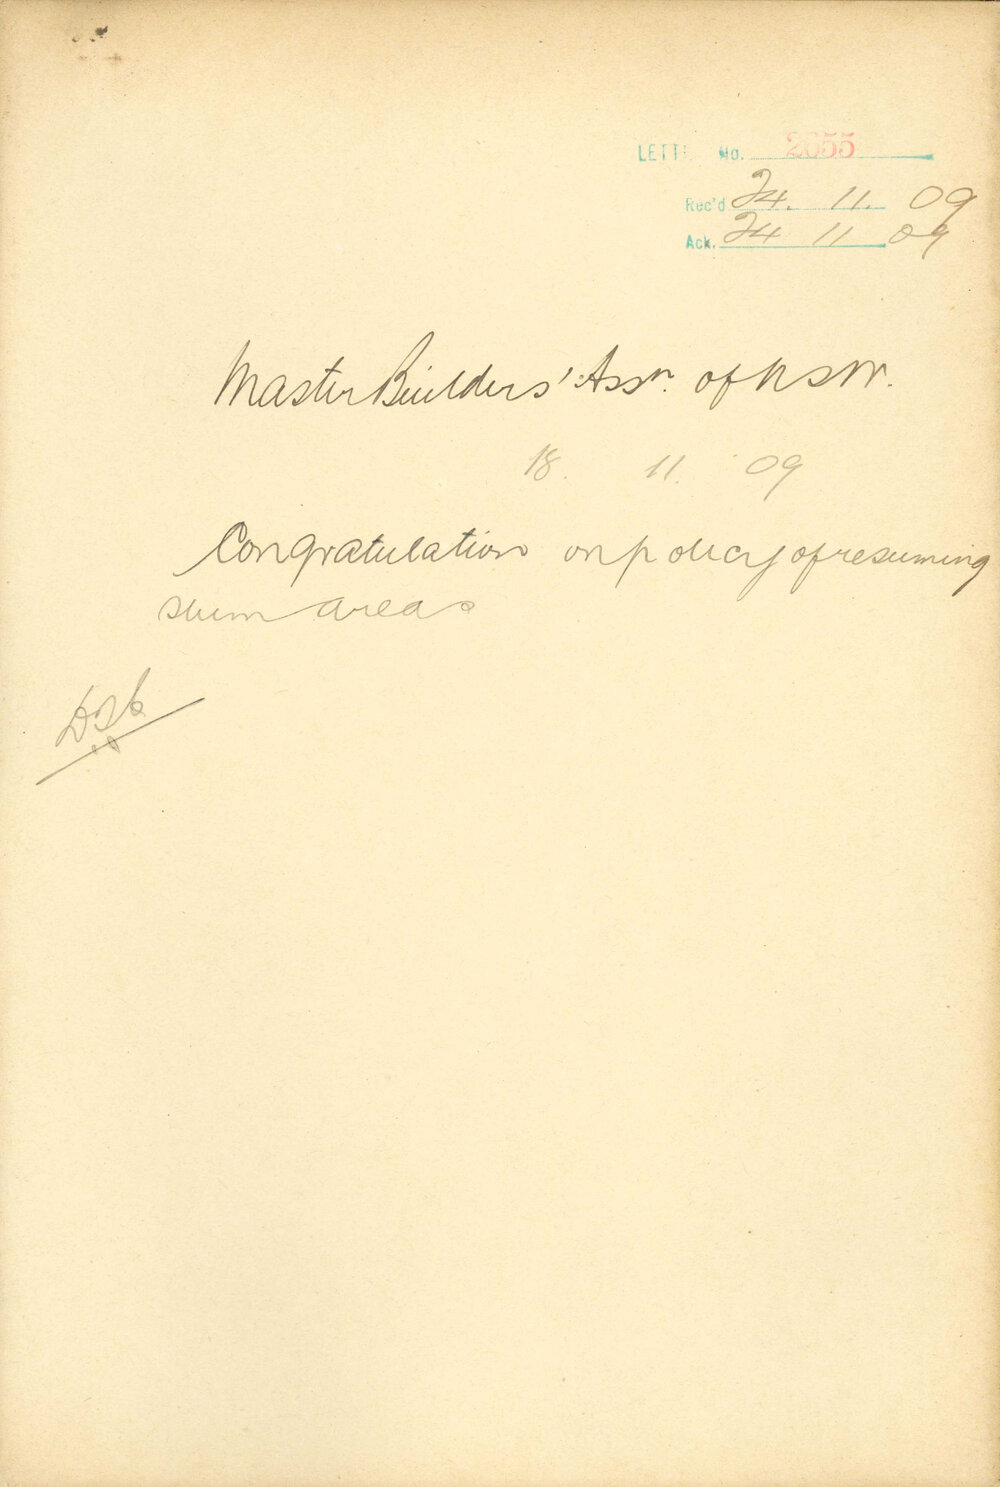 LETT No. 2655
Rec'd 24. 11. 09
Ack. 24 11 09
Master Builders' Assn. of NSW.
18. 11. 09
Congratulation on policy of resuming
slum areas